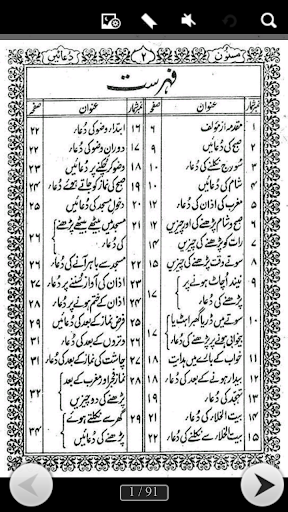 مسنون ۲ دعائیں
فہرست
نمبرشمار عنوان صفحہ
۱ مقدمہ از مؤلف ۶
۲ صبح کی دعائیں
۳ سورج نکلنے کی دعاء
۴ شام کی دعائیں
۵ مغرب کی اذان کی دعاء
۶ صبح وشام پڑھنے کی اور چیزیں
۷ رات کو پڑھنے کی چیزیں ۱۴
۸ سوتے وقت پڑھنے کی چیزیں
۹ نیند اُچاٹ ہونے پر
پڑھنے کی دعاء ۱۷
۱۰ سوتے میں ڈر یا گھبراہٹ یا
بیخوابی ہونے پر پڑھنے کی دعاء ۱۷
۱۱ خواب کے بارے میں ہدایت ۱۸
۱۲ بیدار ہونے کی دعاء ۱۸
۱۳ تہجد کی دعاء
۱۴ بیت الخلاء کی دعاء
۱۵ بیت الخلاء سے نکلنے کی دعاء ۲۲
نمبرشمار عنوان صفحہ
۱۶ ابتداءِ وضو کی دُعاء ۲۲
۱۷ دورانِ وضو کی دُعاء ۲۲
۱۸ وضو کر چکنے پر دُعائیں ۲۳
۱۹ صبح کی نماز کو جاتے ہوئے دُعاء ۲۴
۲۰ دخولِ مسجد کی دُعائیں ۲۵
۲۱ مسجد میں بیٹھے بیٹھے پڑھنے
کی دُعاء ۲۶
۲۲ مسجد سے باہر آنے کی دُعاء ۲۶
۲۳ اذان کی آواز سُننے پر دُعاء ۲۷
۲۴ اذان کے ختم ہونے پر دُعاء ۲۸
۲۵ فرض نماز کے بعد کی دُعائیں ۲۹
۲۶ وتروں کے بعد کی دُعاء ۳۱
۲۷ چاشت کی نماز کے بعد کی دُعاء ۳۱
۲۸ نمازِ فجر اور مغرب کے بعد
پڑھنے کی دو چیزیں ۳۲
۲۹ گھر سے نکلتے ہوئے
پڑھنے کی دُعائیں ۳۴
1 / 91